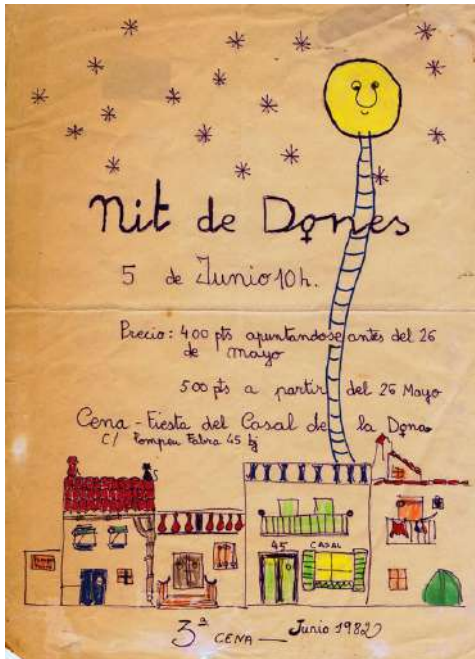 Nit de Dones
5 de Junio 10h.
Precio: 400 pts apuntandose antes del 26
de mayo
500 pts a partir del 26 Mayo
Cena - Fiesta del Casal de la Dona
C/ Pompeu Fabra 45 bj
45 CASAL
3ª CENA — Junio 1982